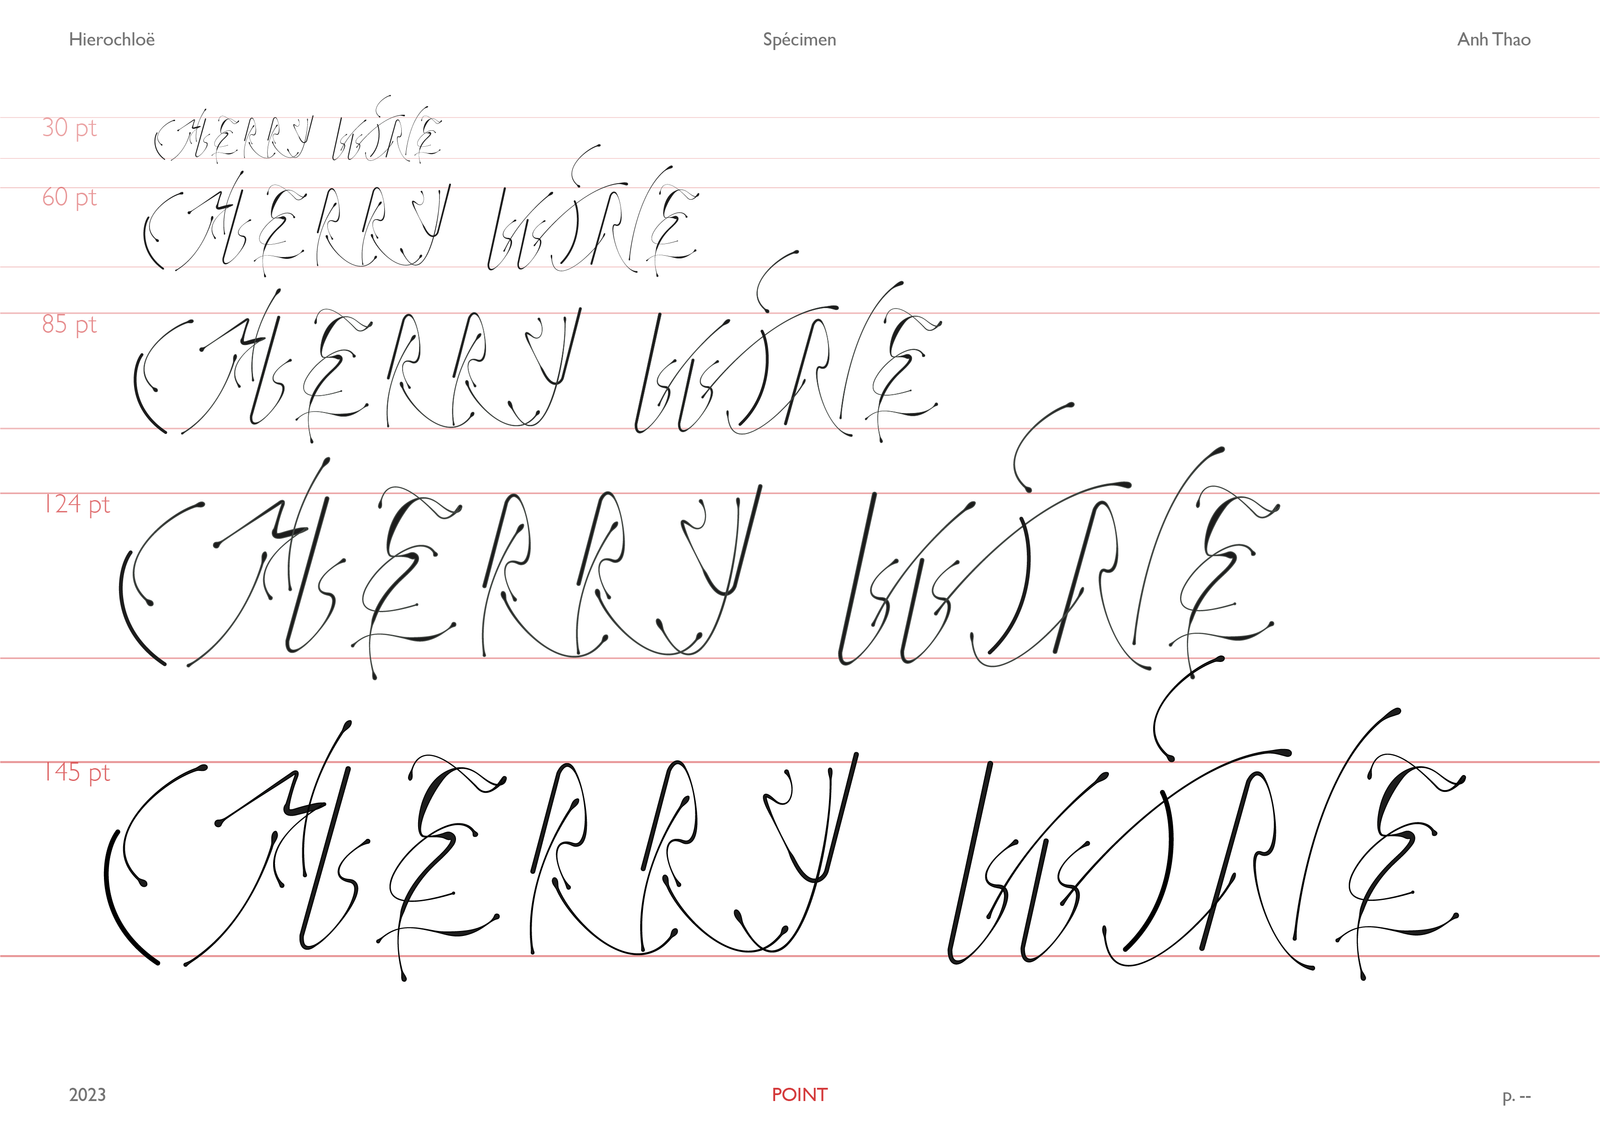 Hierochloë Spécimen Anh Thao
30 pt CHERRY WINE
60 pt CHERRY WINE
85 pt CHERRY WINE
124 pt CHERRY WINE
145 pt CHERRY WINE
2023 POINT p. --